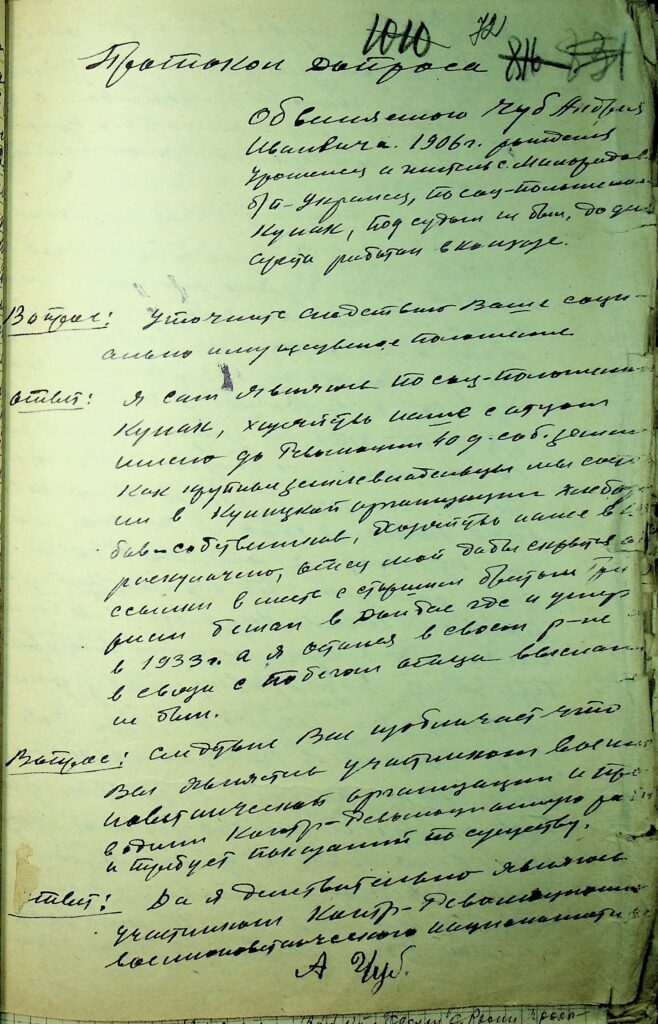 1010 72
Протокол допроса 816 831
Обвиняемого Чуб Андрея
Ивановича 1906 г. рождения
урожен. и житель с. Миноградов
б/п - Украинец, по соц-положению
Кулак, под судом не был, до
ареста работал в колхозе.
Вопрос: Уточните следствию Ваше соци-
ально имущественое положение
Ответ: Я сам являюсь по соц-положению
Кулак, хозяйство наше с отцом
имело до Революции 40 д. соб. земли
Как крупные землевладельцы мы
в Кулацкой организации хлебо
бов-собственников, Хозяйство наше в
роскулачено, отец мой дабы скрытся от
ссылки вместе с старшим братом
бежал в Донбас где и умер
в 1933 г. а я остался в своем р-не
в связи с побегом отца выслан
не был.
Вопрос: Следствие Вас изобличает что
Вы являетесь участником военно
повстанческой организации и про
водили Контр-Революционную
и требует показаний по существу.
Ответ: Да я действительно являюсь
участником Контр-Революционной
военноповстанческого националисти
А Чуб.